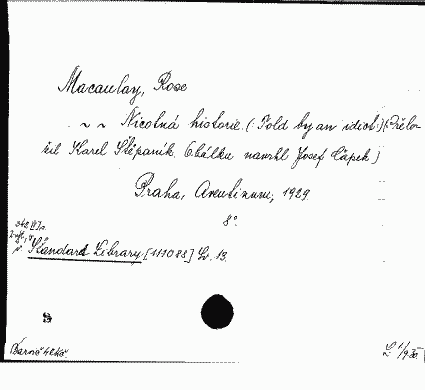 Macaulay, Rose
~ ~ Nicotná historie. (: Told by an idiot:) (Přelo-
žil Karel Štěpaník. Obálku navrhl Josef Čapek)
Praha, Aventinum, 1929
8°.
Standard Library [111088] Sv. 13.